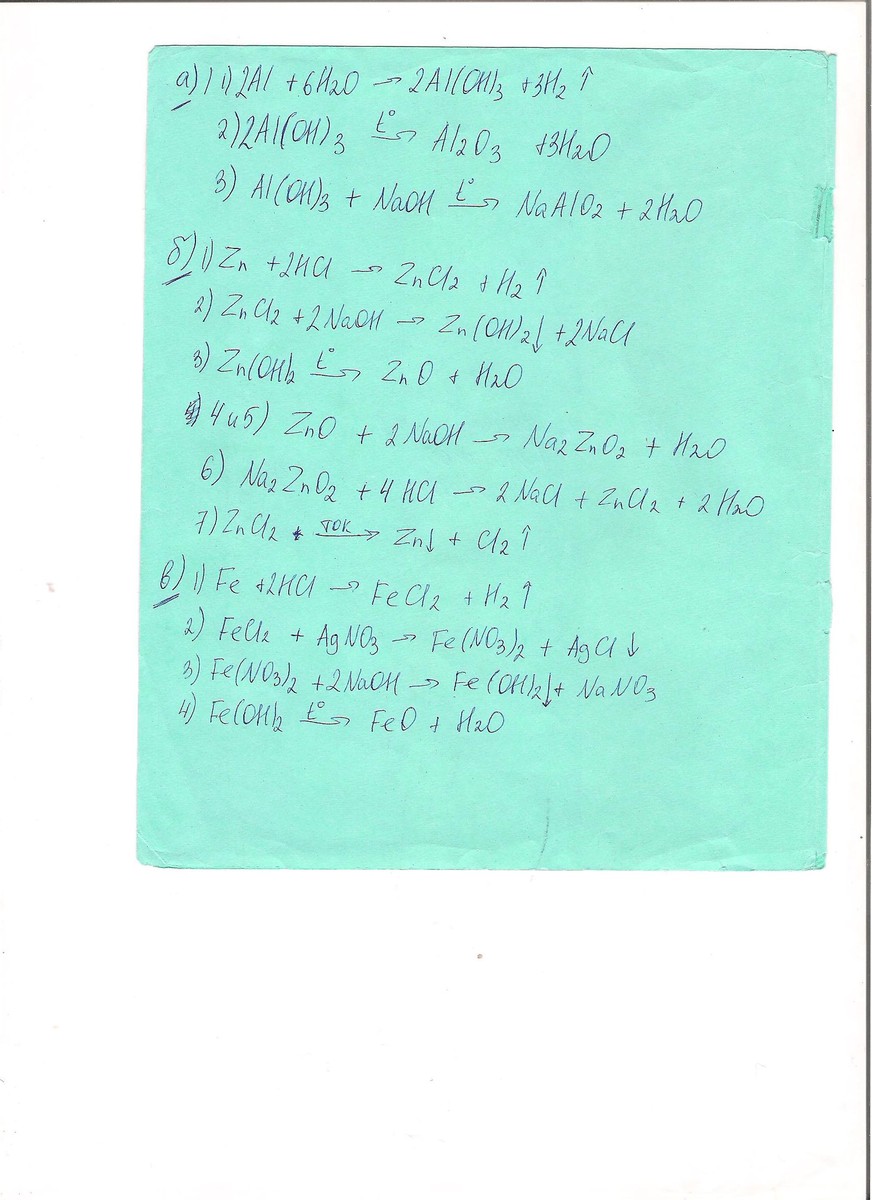 а) 1) 2Al + 6H2O → 2Al(OH)3 + 3H2↑
2) 2Al(OH)3 t°→ Al2O3 + 3H2O
3) Al(OH)3 + NaOH t°→ NaAlO2 + 2H2O
б) 1) Zn + 2HCl → ZnCl2 + H2↑
2) ZnCl2 + 2NaOH → Zn(OH)2↓ + 2NaCl
3) Zn(OH)2 t°→ ZnO + H2O
4 и 5) ZnO + 2NaOH → Na2ZnO2 + H2O
6) Na2ZnO2 + 4HCl → 2NaCl + ZnCl2 + 2H2O
7) ZnCl2 ток→ Zn↓ + Cl2↑
в) 1) Fe + 2HCl → FeCl2 + H2↑
2) FeCl2 + AgNO3 → Fe(NO3)2 + AgCl↓
3) Fe(NO3)2 + 2NaOH → Fe(OH)2↓ + NaNO3
4) Fe(OH)2 t°→ FeO + H2O